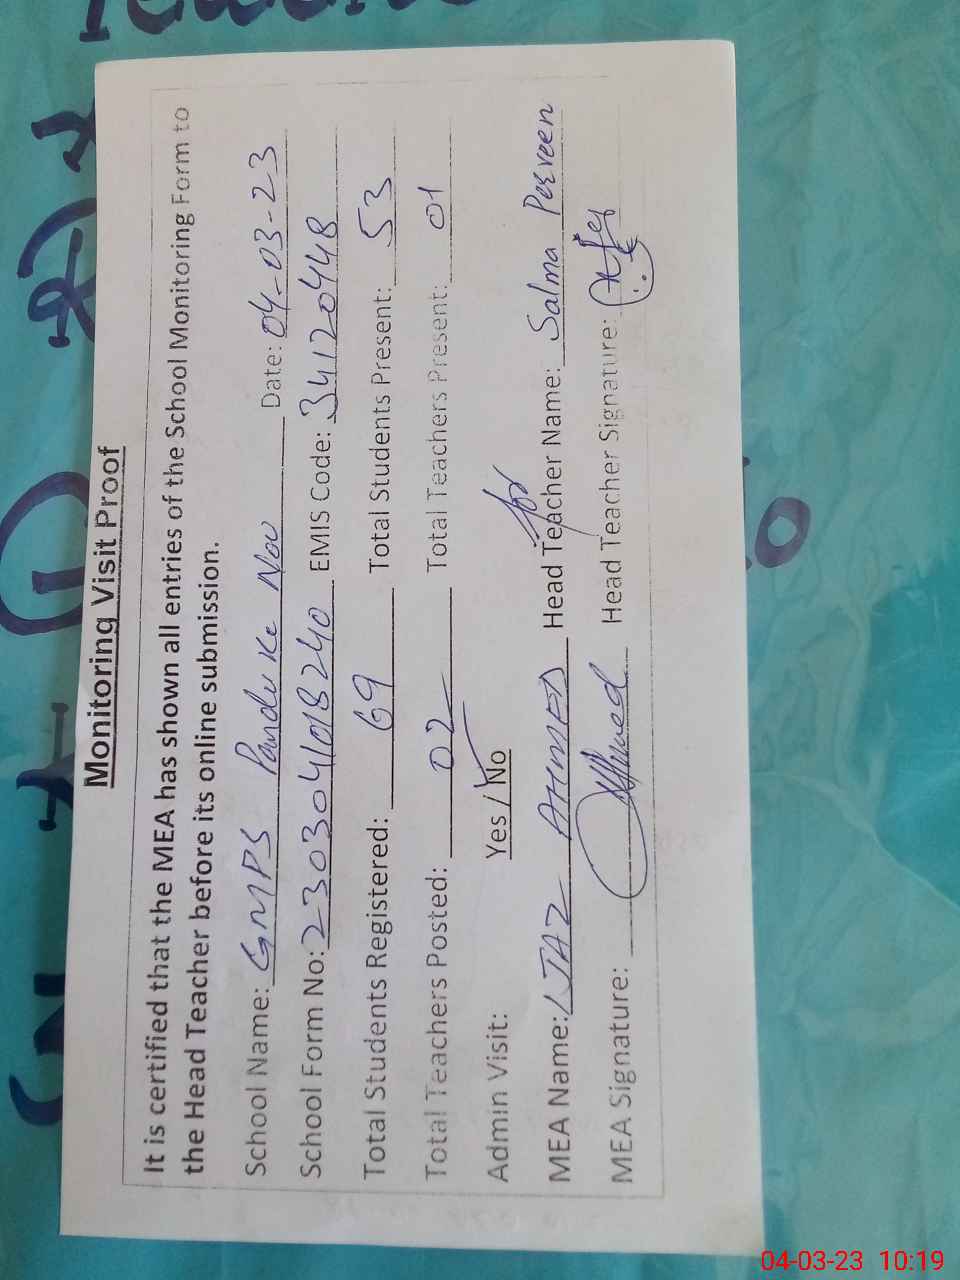 Monitoring Visit Proof
It is certified that the MEA has shown all entries of the School Monitoring Form to
the Head Teacher before its online submission.
School Name: GMPS Pandu Ke Nou Date: 04-03-23
School Form No: 230304018240 EMIS Code: 34120448
Total Students Registered: 69 Total Students Present: 53
Total Teachers Posted: 02 Total Teachers Present: 01
Admin Visit: Yes / No
for
MEA Name: IJAZ AHMED Head Teacher Name: Salma Perveen
MEA Signature: Head Teacher Signature:
04-03-23 10:19